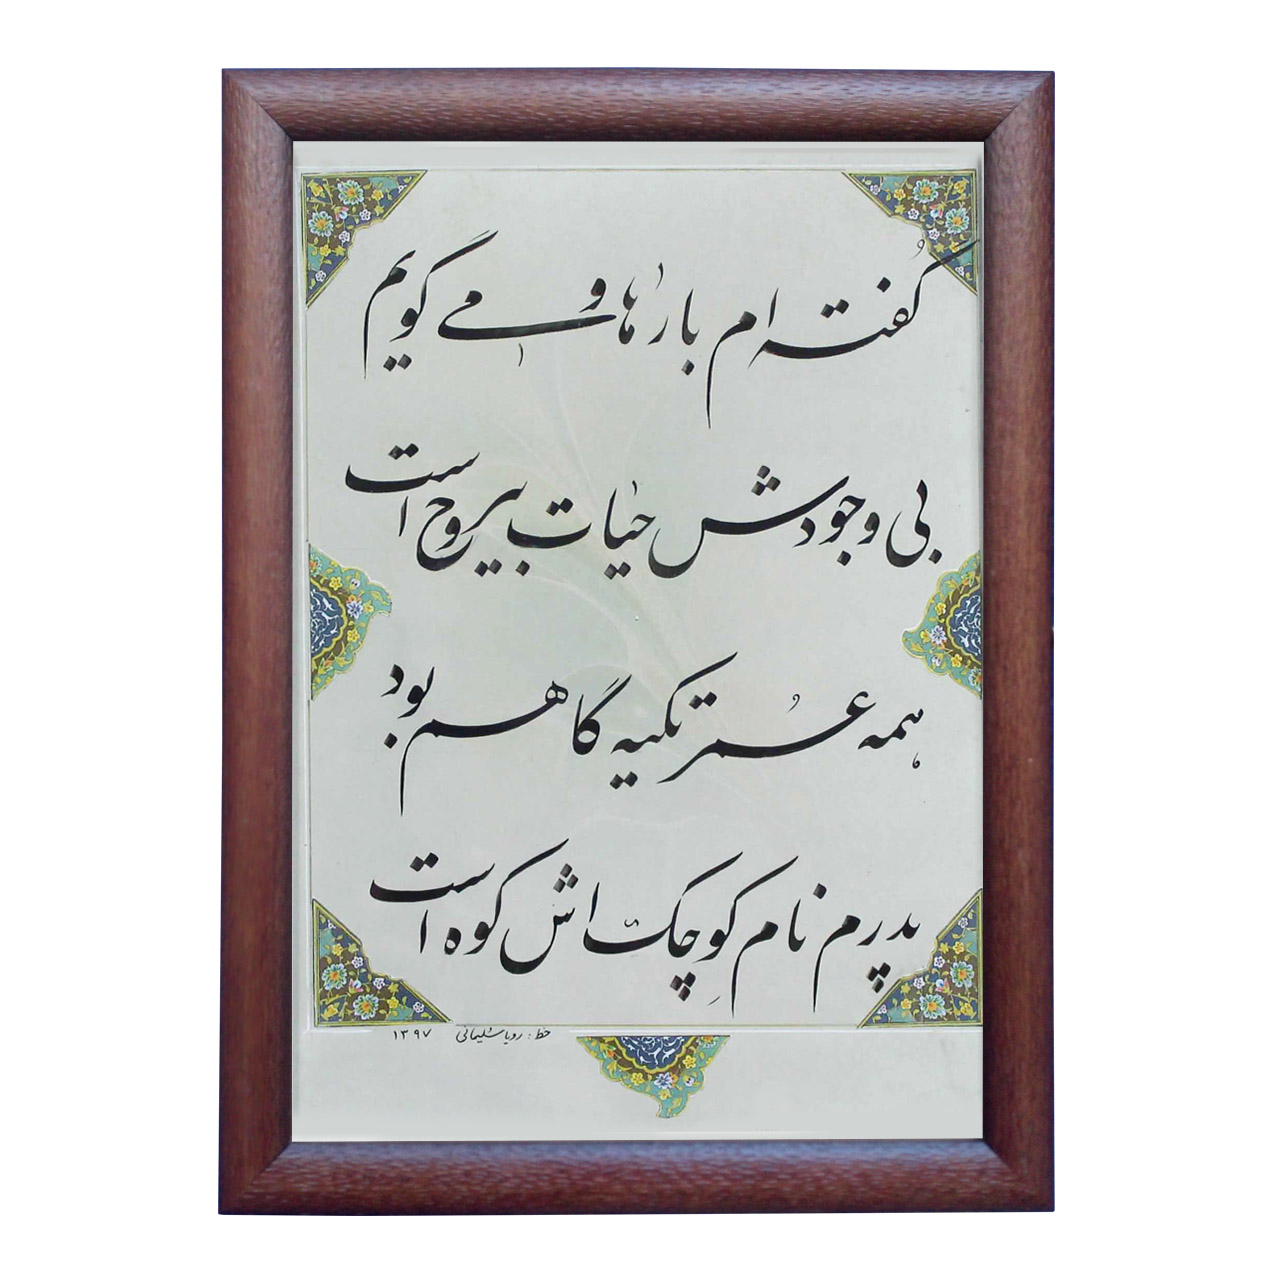 گفته ام بارها و می گویم
بی وجودش حیات بیروح است
همه عُمر تکیه گاهم بود
پدرم نام کوِچک اش کوه است
خط : رویا سلیمانی ۱۳۹۷